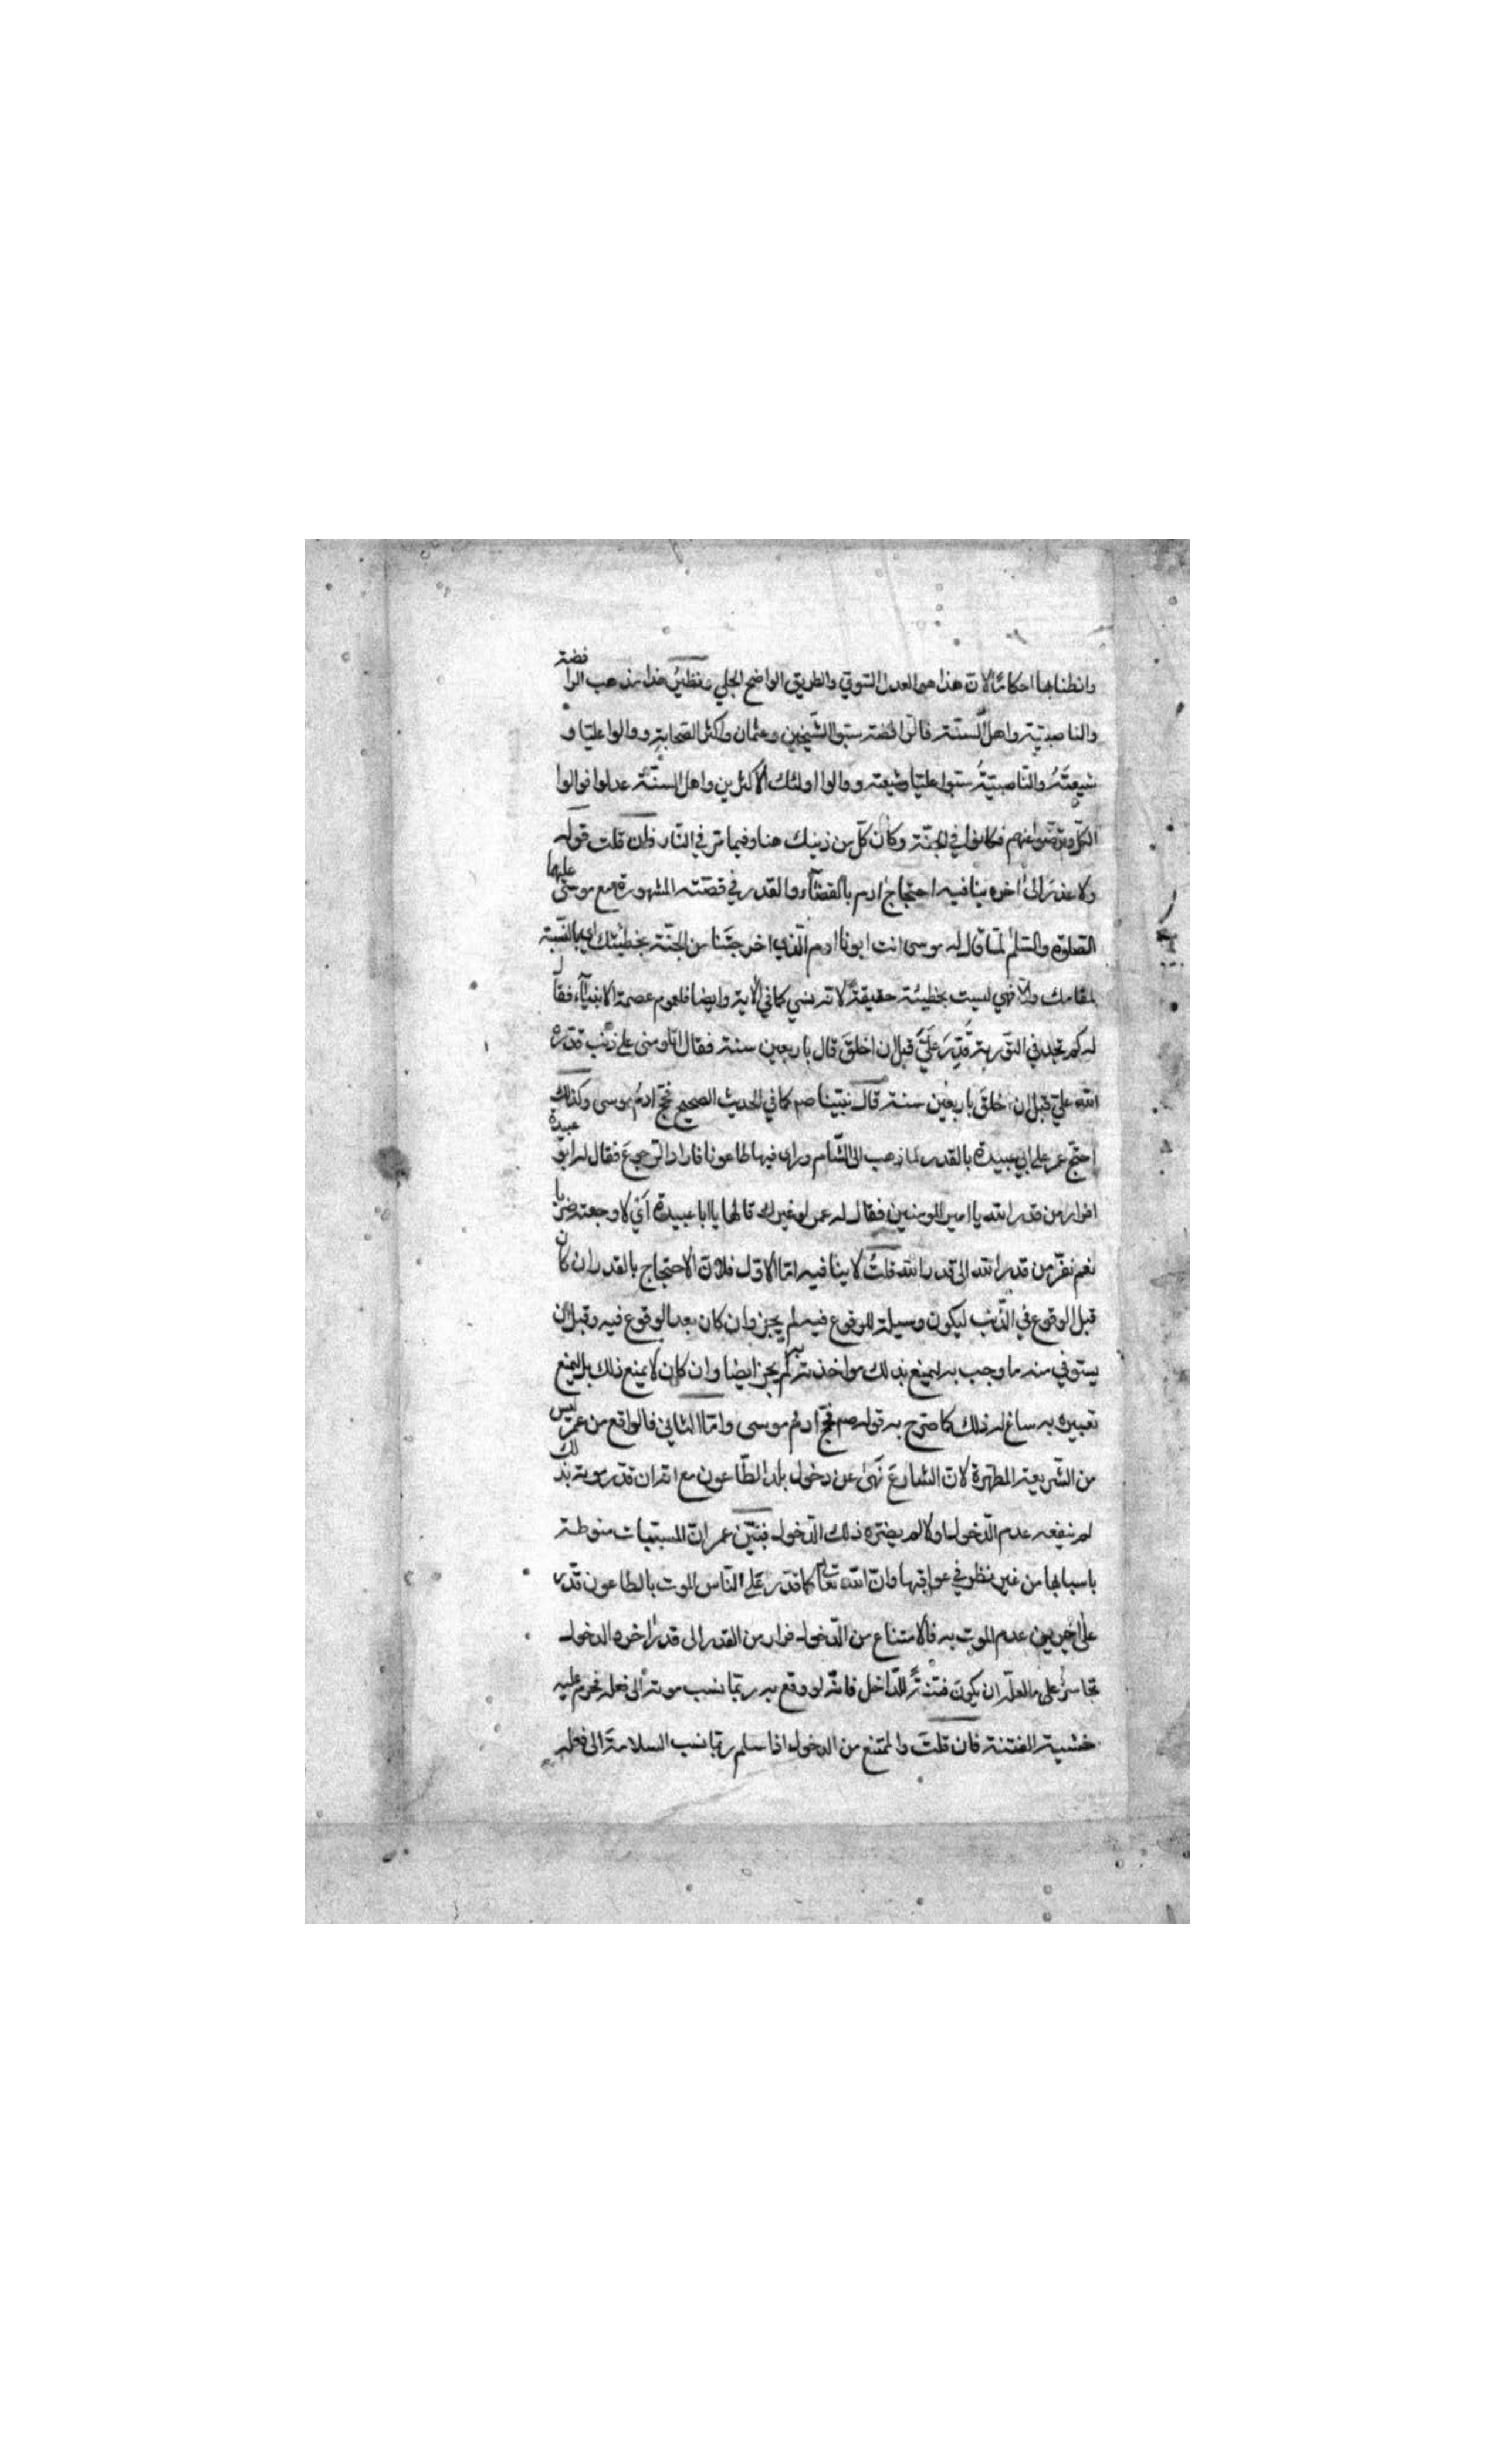 وانطنا بها احكامًا لان هذا هو العدل السّوىّ والطريق الواضح الجلي ونظيرُ هذا مذهب الرافضة
والناصبيّة واهل السنّة فالرّافضة سبّوا الشّيخين وعثمان واكثر الصّحابة ووالوا عليّا و
شيعتَهُ والنّاصبيّةُ سبّوا عليّا وشيعته ووالوا اولئك الاكثرين واهل السنّة عدلوا فوالوا
الكلّ وترضّوا عنهم فكانوا في الجنّة وكان كلّ من ذينك هنا وفيما مرّ في النّار فان قلت قوله
ولا عذرَ الى اخره ينافيه احتجاج ادم بالقضاء والقدر في قصّته المشهورة مع موسى عليها
الصلوة والسّلم لمّا قال له موسى انت ابونا ادم الّذي اخرجتَنا من الجنّة بخطيئتك اي بالنّسبة
لمقامك والا فهي ليست بخطيئة حقيقة لانه نسي كما في الاية وايضا فلعموم عصمة الانبياء فقال
له كم تجد في التّورية قُدِّرَ عَلَيَّ قبل ان اخلقَ قال باربعين سنة فقال اتلومنى على ذنب قدّره
الله علي قبل ان اخلقَ باربعين سنة قال نبيّنا صم كما في الحديث الصحيح فحجّ ادمُ موسى وكذلك
احتجّ عمر على ابي عبيدة بالقدر لما ذهب الى الشّام وراى فيها طاعونا فاراد الرّجوعَ فقال له ابو عبيدة
افرار من قدر الله يا امير المومنين فقال له عمر لو غيرك قالها يا ابا عبيدة اي لاوجعته ضربا
نعم نفرّ من قدر الله الى قدر الله قلتُ لا ينافيه امّا الاوّل فلانّ الاحتجاج بالقدر ان كان
قبل الوقوع في الذّنب ليكون وسيلة للوقوع فيه لم يجز وان كان بعد الوقوع فيه وقبل ان
يستوفي منه ما وجب به ليمنع بذلك مواخذته به لم يجز ايضا وان كان لا يمنع ذلك بل ليمنع
تعييره به ساغ له ذلك كما صرّح به قوله صم فحجّ ادمُ موسى وامّا الثاني فالواقع من عمر ليس
من الشّريعة المطهرة لانّ الشارعَ نَهَى عن دخول بلد الطّاعون مع انه ان قدّر موته بذلك
لم ينفعه عدم الدّخول او لا لم يضرّه ذلك الدّخول فبيّن عمر انّ المسبّبات منوطة
باسبابها من غير نظر في عواقبها وانّ الله تعالى كما قدّر على النّاس الموت بالطاعون قدّر
على اخرين عدم الموت به فالامتناع من الدّخول فرار من القدر الى قدر اخر والدخول
تجاسرٌ على ما لعلّه ان يكون فتنةً للدّاخل فانّه لو وقع به ربّما نسب موته الى فعله فحرم عليه
خشية الفتنة فان قلتَ والممتنع من الدخول اذا سلم ربّما نسب السلامةَ الى فعله